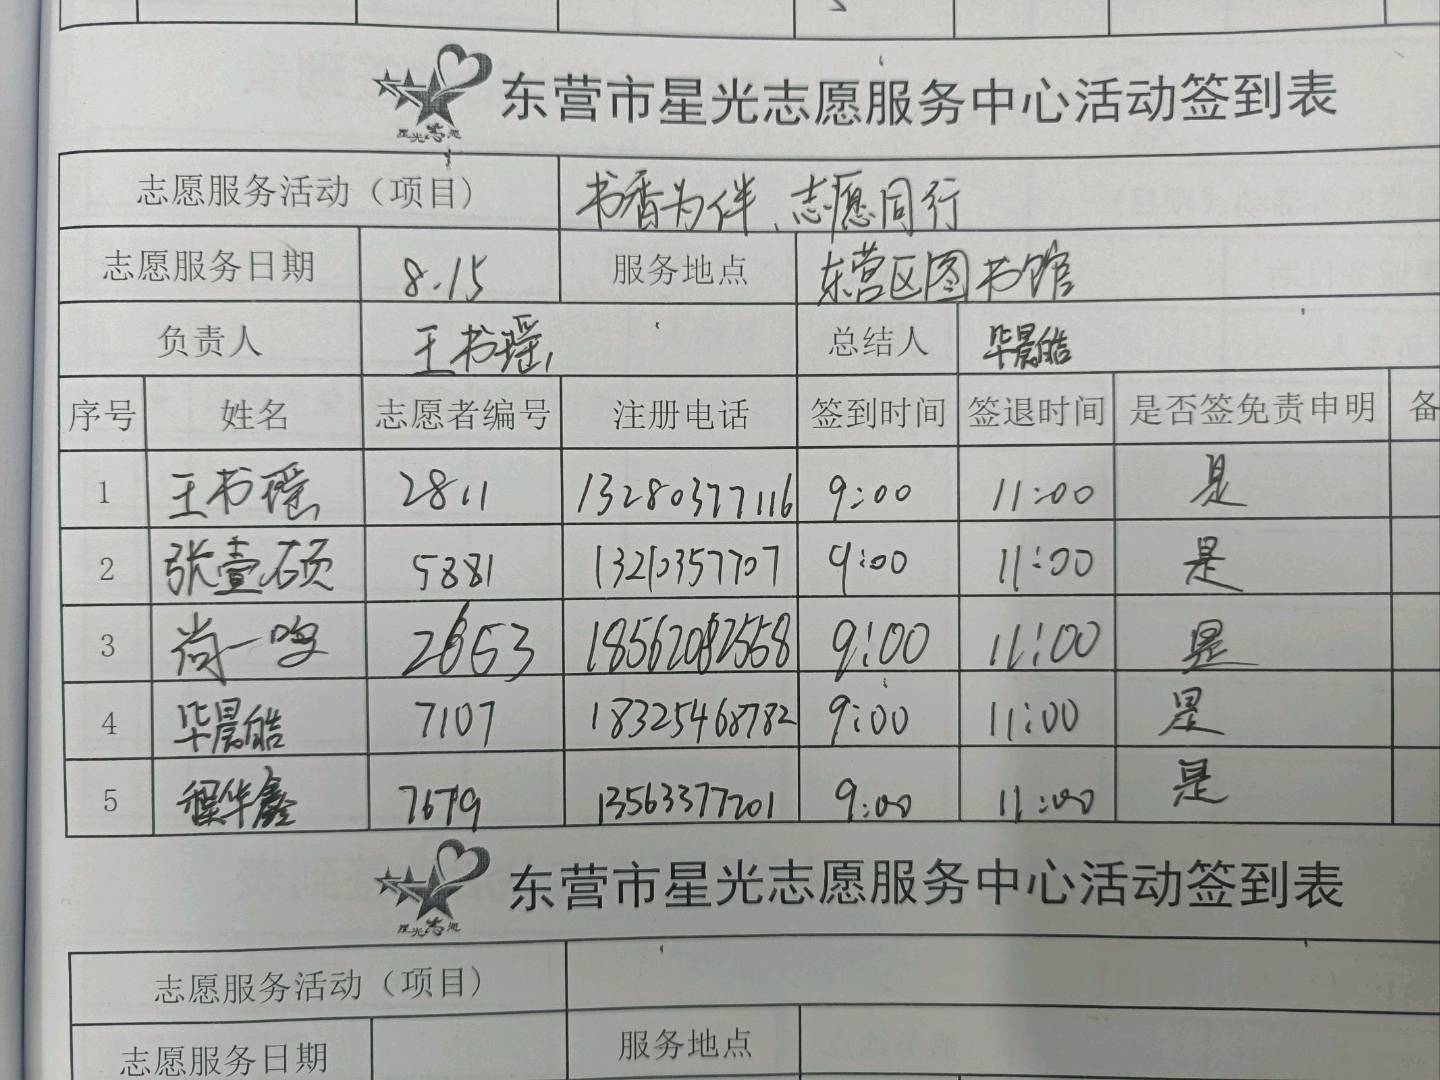 星光志愿
东营市星光志愿服务中心活动签到表
志愿服务活动（项目） 书香为伴、志愿同行
志愿服务日期 8.15 服务地点 东营区图书馆
负责人 王书瑶 总结人 毕晨皓
序号 姓名 志愿者编号 注册电话 签到时间 签退时间 是否签免责申明 备
1 王书瑶 2811 13280377116 9:00 11:00 是
2 张壹硕 5881 13210357707 9:00 11:00 是
3 尚一鸣 2653 18562082558 9:00 11:00 是
4 毕晨皓 7107 18325468782 9:00 11:00 是
5 程华鑫 7679 13563377201 9:00 11:00 是
星光志愿
东营市星光志愿服务中心活动签到表
志愿服务活动（项目）
志愿服务日期 服务地点